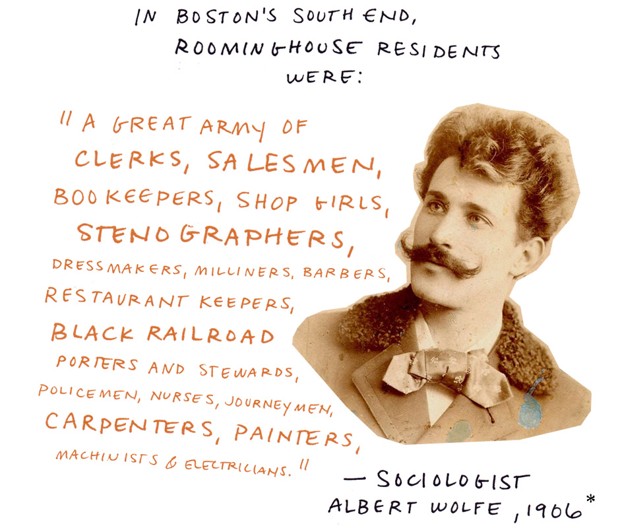 IN BOSTON'S SOUTH END,
ROOMINGHOUSE RESIDENTS
WERE:
"A GREAT ARMY OF
CLERKS, SALESMEN,
BOOKEEPERS, SHOP GIRLS,
STENOGRAPHERS,
DRESSMAKERS, MILLINERS, BARBERS,
RESTAURANT KEEPERS,
BLACK RAILROAD
PORTERS AND STEWARDS,
POLICEMEN, NURSES, JOURNEYMEN,
CARPENTERS, PAINTERS,
MACHINISTS & ELECTRICIANS."
— SOCIOLOGIST
ALBERT WOLFE, 1906*